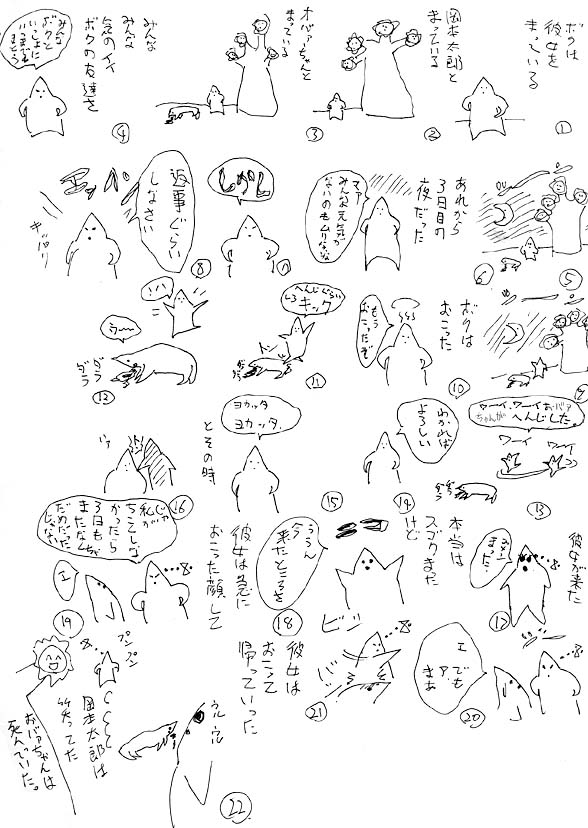 ボクは
彼女を
まっている
①
岡本太郎と
まっている
②
オバァーちゃんと
まっている
③
みんな
みんな
気のイイ
ボクの友達さ
みんな
ボクと
いっしょに
④
⑤
⑥
あれから
3日目の
夜だった
マァ
みんな元気が
ないのもムリないな
⑦
しかし
⑧
返事ぐらい
しなさい
エッヘン
キッパリ
⑨
ボクは
おこった
⑩
もう
おこったぞ
⑪
へんじぐらい
しろ
キック
ドン
⑫
ハハ
う〜〜
ガブ
ガブ
⑬
ワーイ、ワーイおバァ
ちゃんが
へんじした。
ワーイ
ワーイ
⑭
わかれば
よろしい
⑮
ヨカッタ
ヨカッタ
とその時
⑯
⑰
彼女が来た
まった?
本当は
スゴクまた
けど
⑱
ううん
今
来たところさ
ビシ
彼女は急に
おこった顔して
⑲
私が
もしか
かったら
3日も
またなくちゃ
だめだった
じゃない
エ
⑳
エ
でも
まァ
㉑
彼女は
おこって
帰っていった
㉒
ウルウル
プンプン
岡本太郎は
笑ってた
おバァちゃんは
死んでいた。